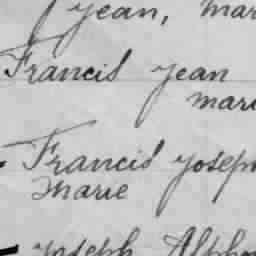 Jean, Mar
Francis Jean
Mari
Francis Joseph
Marie
Joseph Alpho